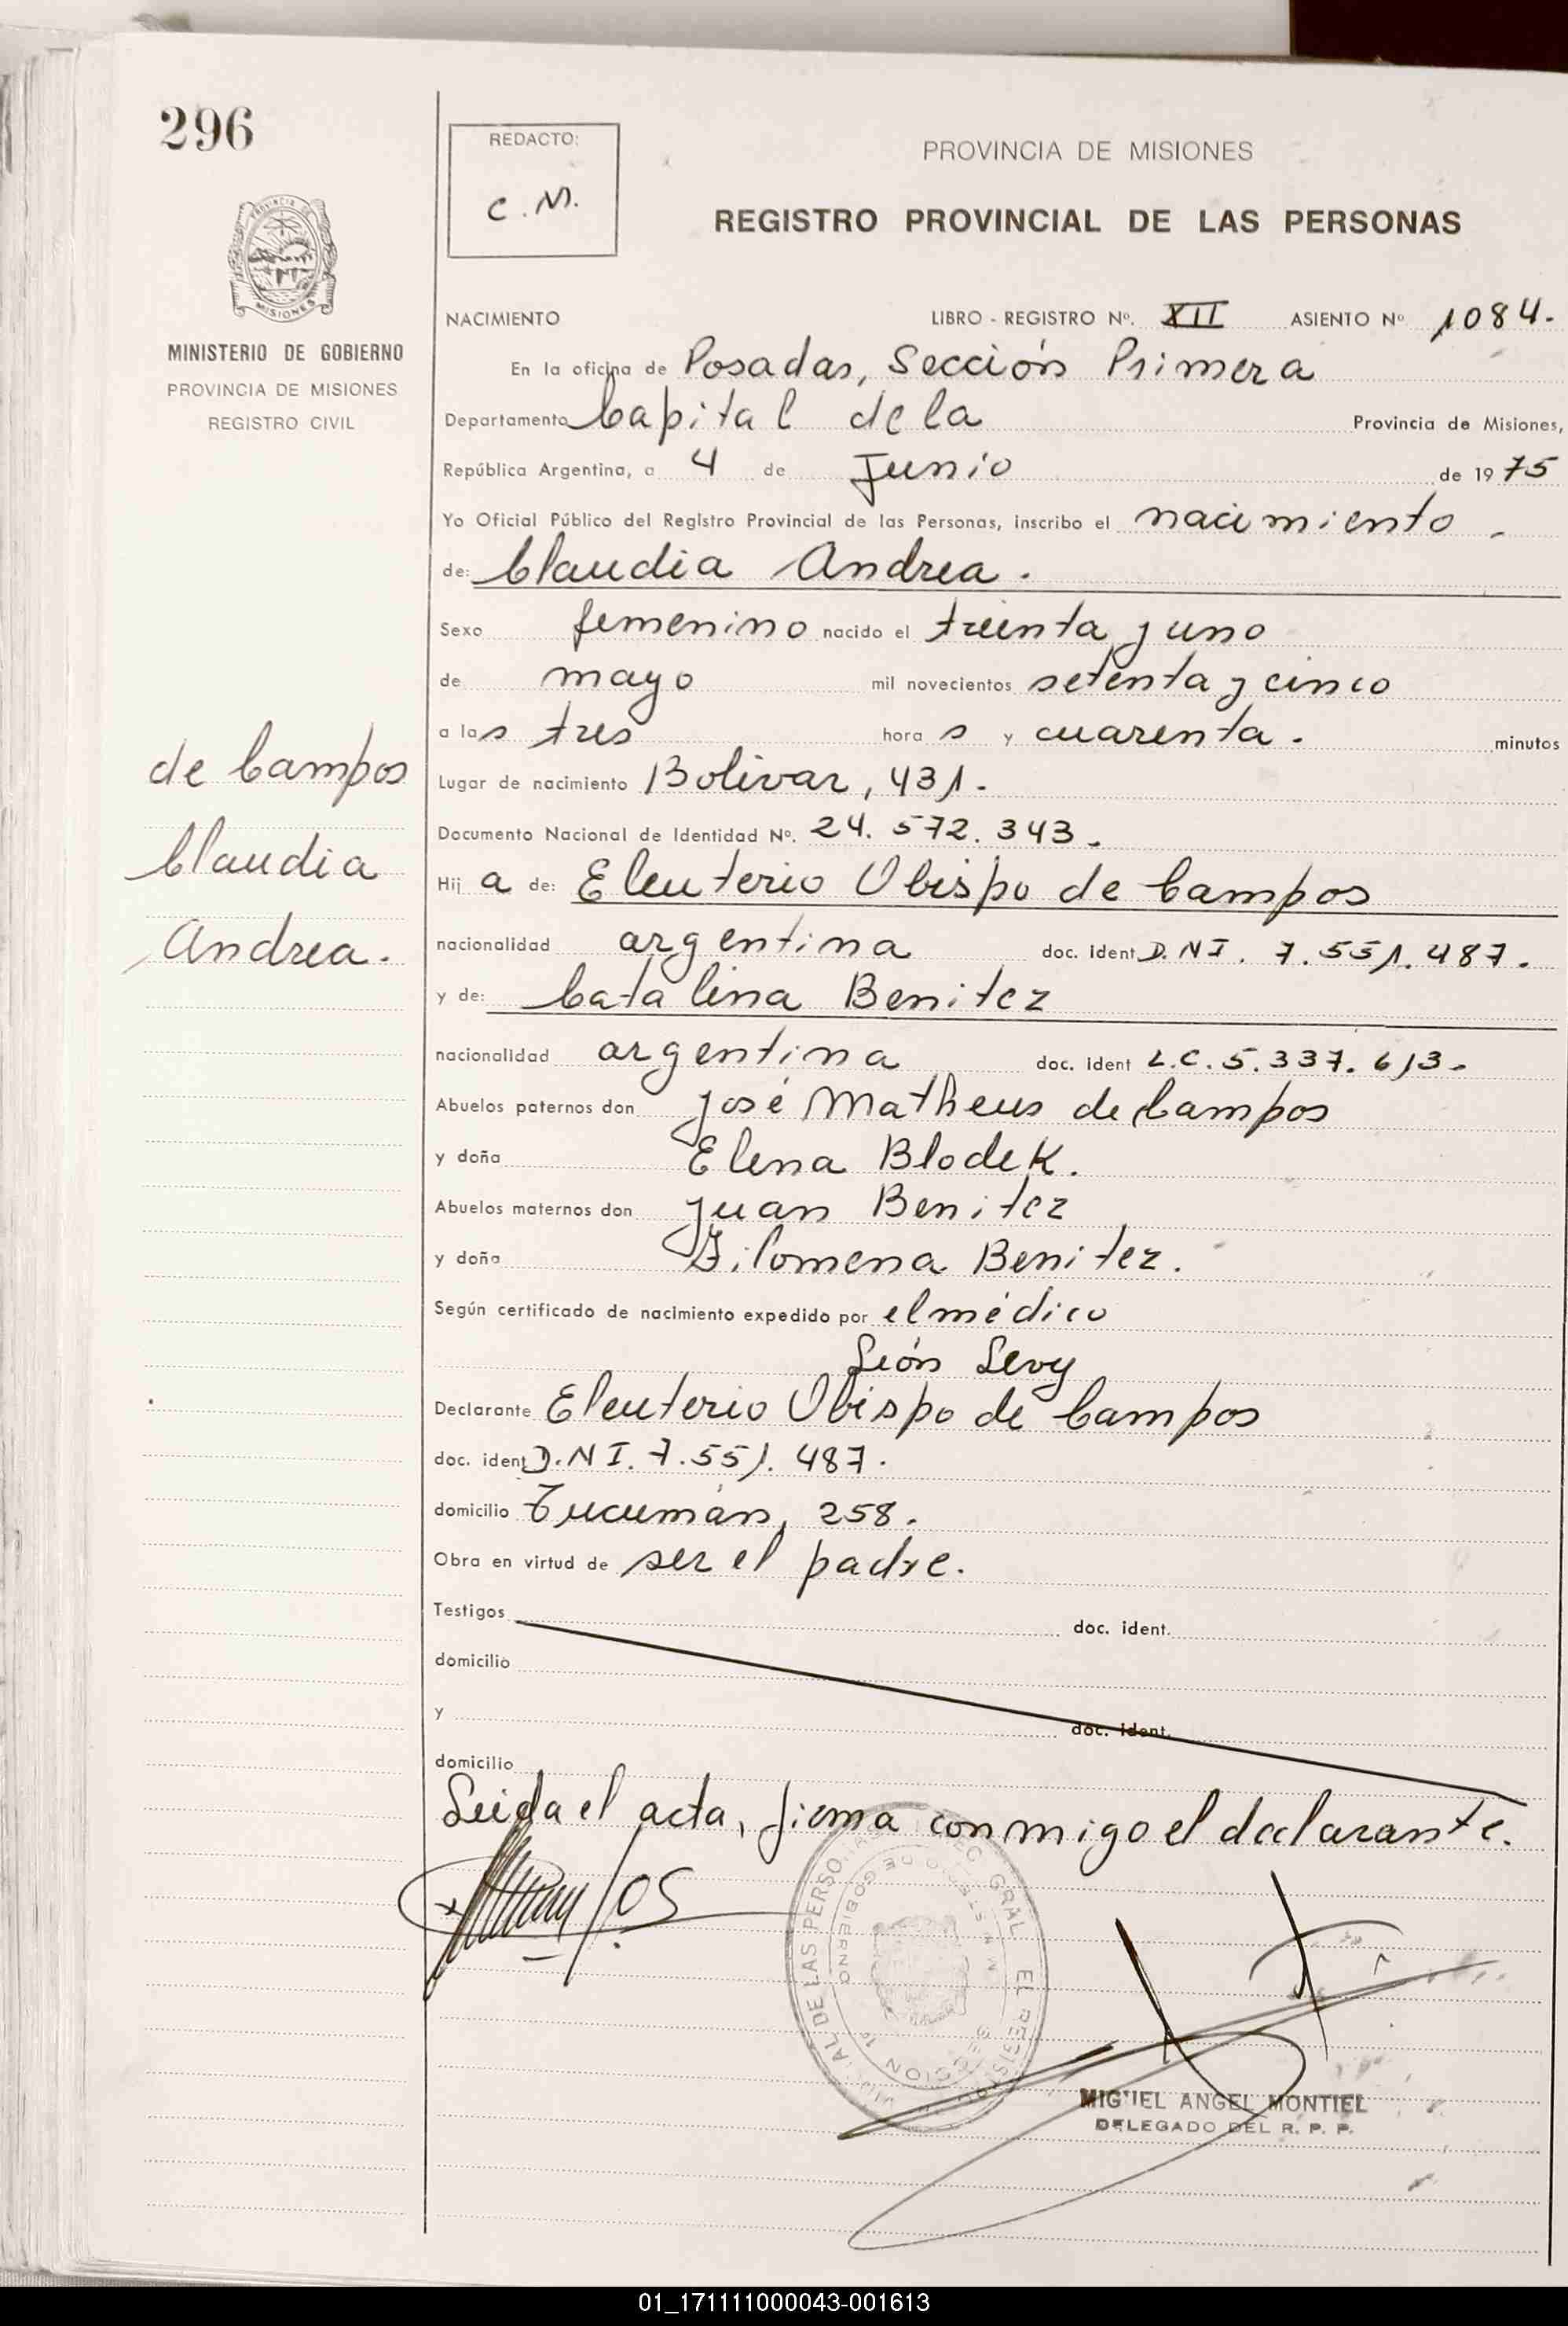 296
REDACTO:
C. M.
PROVINCIA DE MISIONES
REGISTRO PROVINCIAL DE LAS PERSONAS
MISIONES
MINISTERIO DE GOBIERNO
PROVINCIA DE MISIONES
REGISTRO CIVIL
NACIMIENTO LIBRO - REGISTRO Nº. XII ASIENTO Nº 1084.
En la oficina de Posadas, Sección Primera
Departamento Capital de la Provincia de Misiones,
República Argentina, a 4 de Junio de 1975
Yo Oficial Público del Registro Provincial de las Personas, inscribo el nacimiento
de: Claudia Andrea.
Sexo femenino nacido el treinta y uno
de mayo mil novecientos setenta y cinco
a las tres horas y cuarenta. minutos
de Campos
Claudia
Andrea.
Lugar de nacimiento Bolivar, 431.
Documento Nacional de Identidad Nº. 24.572.343.
Hija de: Eleuterio Obispo de Campos
nacionalidad argentina doc. ident D.N.I. 7.551.487.
y de: Catalina Benitez
nacionalidad argentina doc. ident L.C. 5.337.613.
Abuelos paternos don José Matheus de Campos
y doña Elena Blodek.
Abuelos maternos don Juan Benitez
y doña Filomena Benitez.
Según certificado de nacimiento expedido por el médico
León Levy
Declarante Eleuterio Obispo de Campos
doc. ident D.N.I. 7.551.487.
domicilio Tucumán, 258.
Obra en virtud de ser el padre.
Testigos doc. ident.
domicilio
y doc. ident.
domicilio
Leida el acta, firma conmigo el declarante.
MIGUEL ANGEL MONTIEL
DELEGADO DEL R. P. P.
01_171111000043-001613